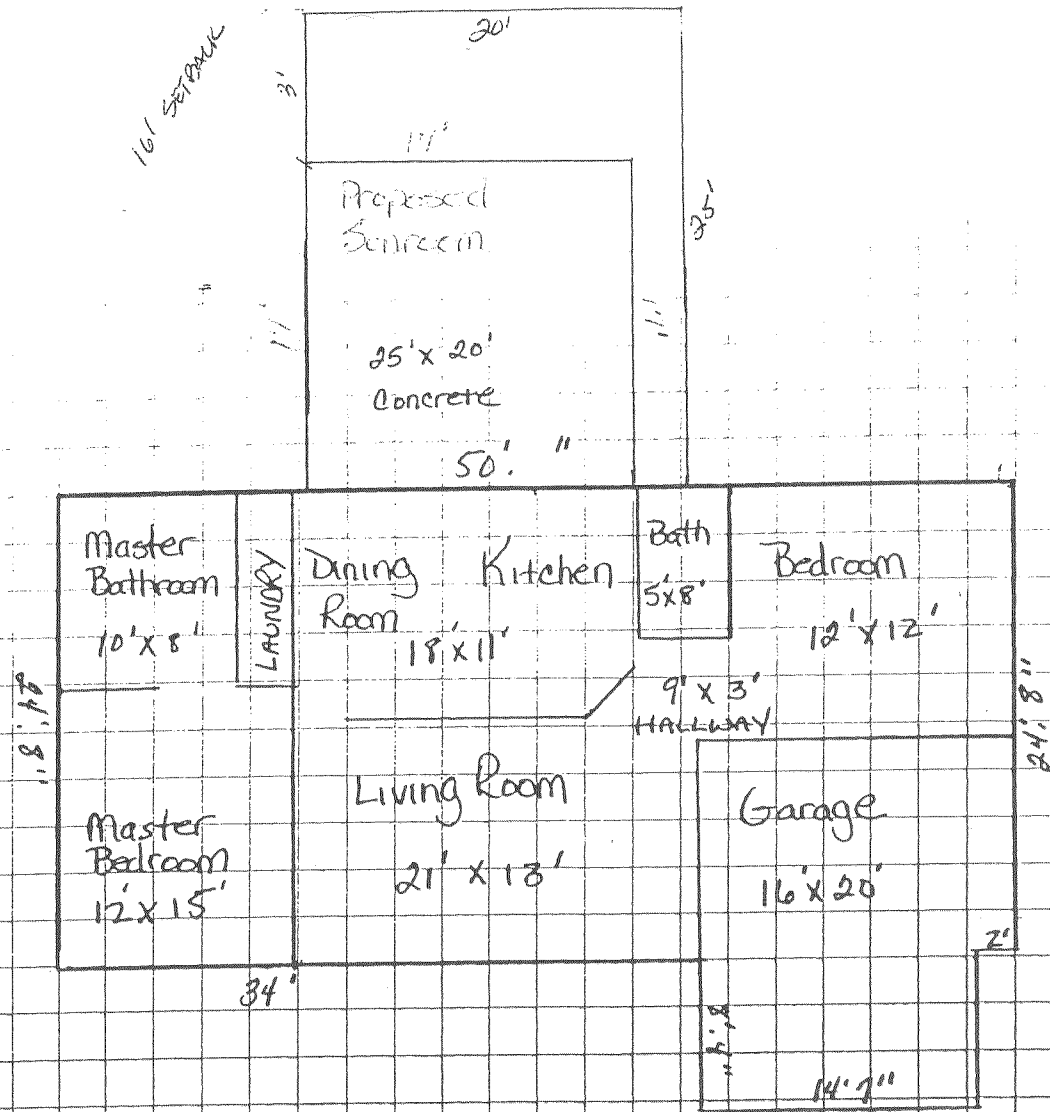 20'
16' SETBACK
3'
17'
Proposed
Sunroom
25'
17'
25' x 20'
Concrete
50' "
Master
Bathroom
10' x 8'
LAUNDRY
Dining
Room
Kitchen
18' x 11'
Bath
5'x8'
Bedroom
12' x 12'
9' x 3'
HALLWAY
24' 8"
24' 8"
Living Room
21' x 13'
Master
Bedroom
12' x 15'
Garage
16' x 20'
2'
34'
14' 7"